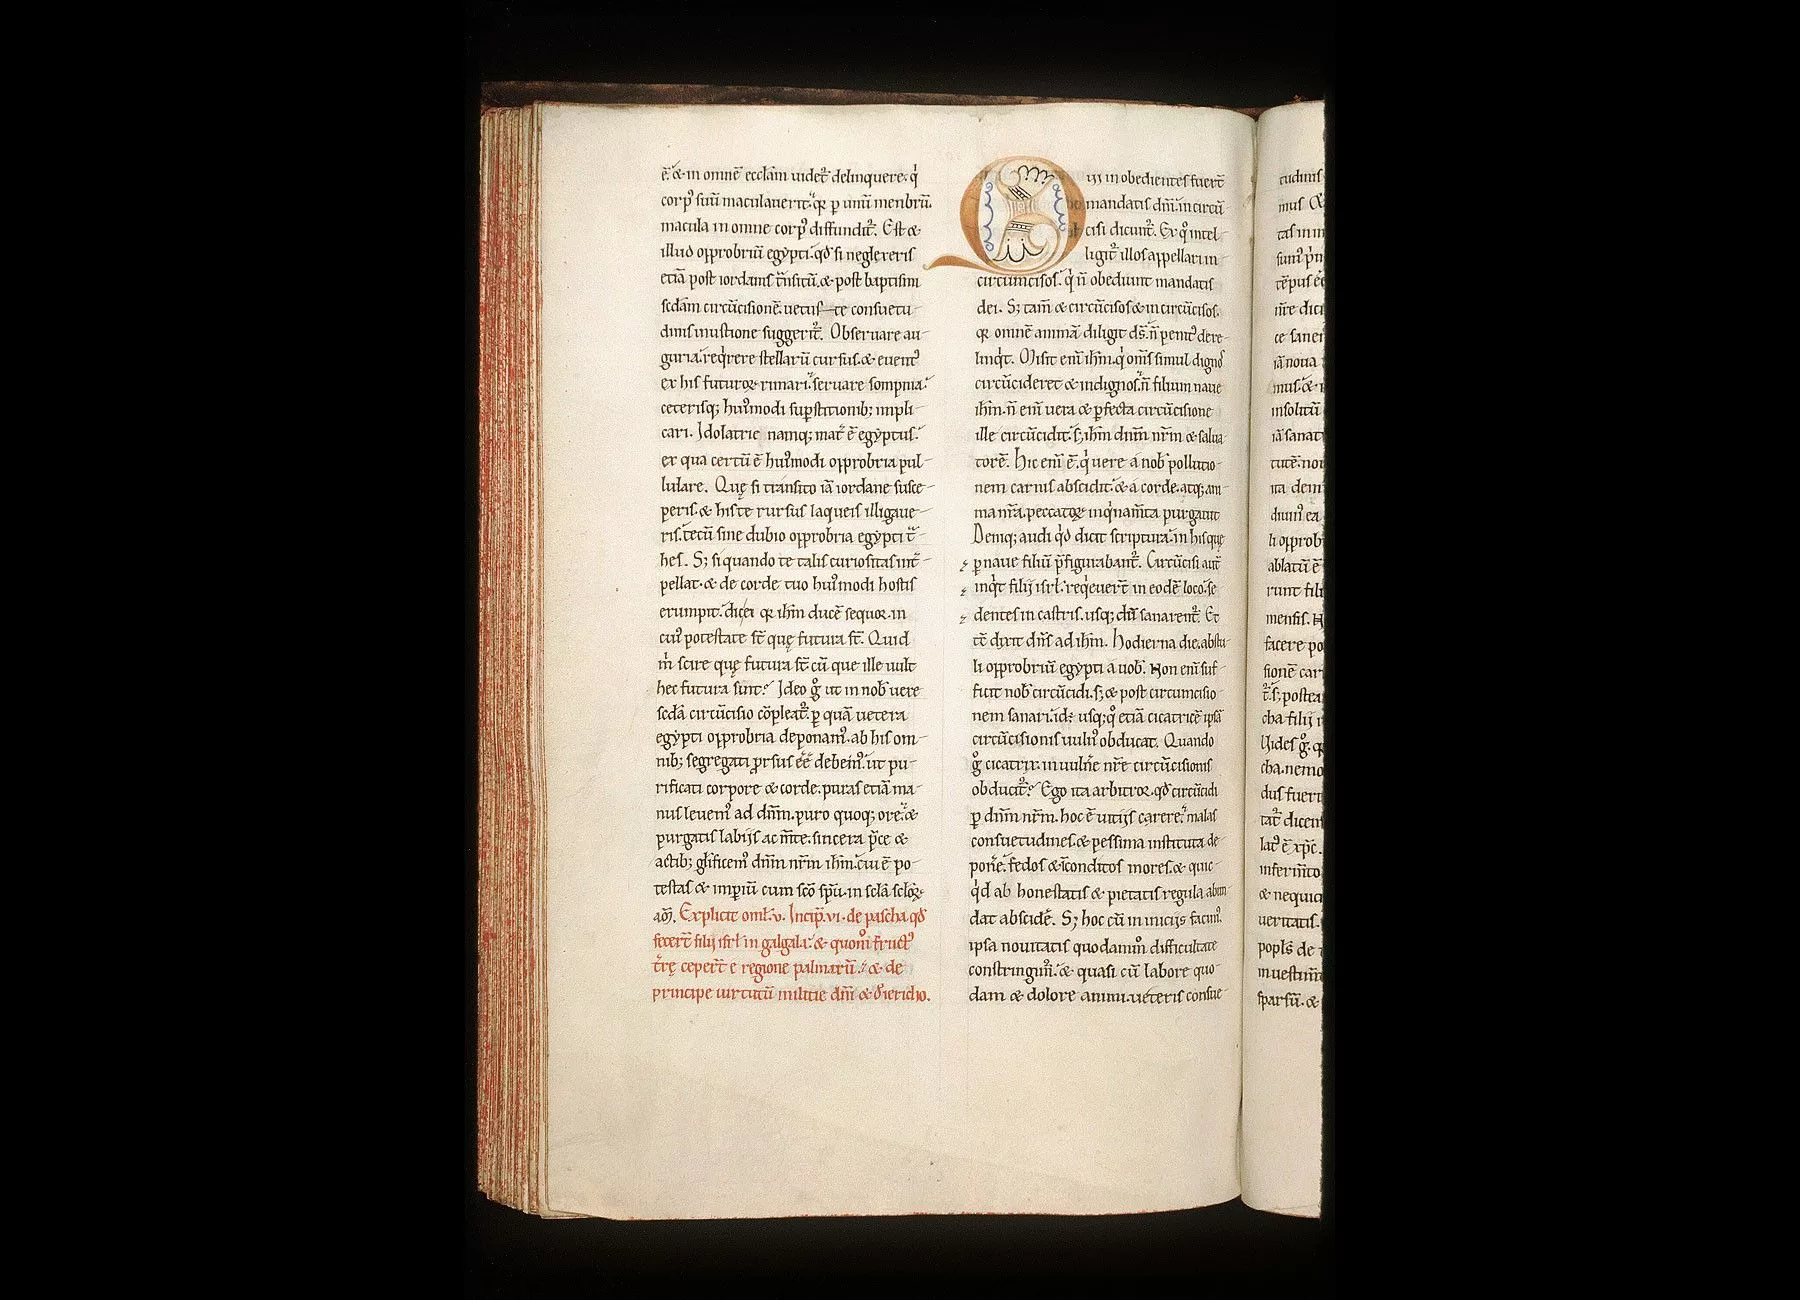 ē. & in omnē ecclam uidet᷑ delinquere: q'
corp᷒ suū maculauerit. q̨ꝛ p unū menbrū.
macula in omne corp᷒ diffundit᷑. Est &
illud opprobriū egẏpti. qđ si neglexeris
etiā post iordanis t̄nsitū. & post baptismi
scđam circūcisionē. uetus te consuetu-
dinis inustione suggerit᷑. Obseruare au-
guria. req'rere stellarū cursus. & euent᷒
ex his futuroꝝ rimari. seruare sompnia.
ceterisq; hui᷒modi sup̄stitionib; impli-
cari. Idolatrie namq; mat᷑ ē egẏptus.
ex qua certū ē hui᷒modi opprobria pul-
lulare. Quę si transito iā iordane susce-
peris. & his te rursus laqueis illigaue-
ris. tecū sine dubio opprobria egẏpti t᷑-
hes. S; si quando te talis curiositas int᷑-
pellat. & de corde tuo hui᷒modi hostis
erumpit. dicei qꝛ ihm̄ ducē sequoꝛ. in
cui᷒ potestate st̄ quę futura st̄. Quid
m' scire quę futura st̄ cū que ille uult
hec futura sunt? Ideo g° ut in nob̄ uere
scđa circūcisio cōpleat᷑. ꝑ quā uetera
egẏpti opprobria deponam᷒. ab his om-
nib; segregati ꝓrsus ēē debem᷒. ut pu-
rificati corpore & corde. puras etiā ma-
nus leuem᷒ ad dn̄m. puro quoq; ore. &
purgatis labijs ac m̄te. sincera p̄ce &
actib; gl̄ificem᷒ dn̄m nr̄m ihm̄. cui ē po-
testas & imp̄iū cum scō sp̄u. in sc̄la sc̄loꝝ
am̄. Explicit oml̄. v. Incip̄. vi. de pascha qđ
fecert̄ filij isrl̄ in galgala: & quom° fruct᷒
t̄rę cepert̄ e regione palmarū. & de
principe uirtutū militie dn̄i & đ iericho.
Q
ui inobedientes fuert̄
mandatis dn̄i. incircū-
cisi dicunt᷑. Ex q° intel-
ligit᷑ illos appellari in-
circumcisos. q' n̄ obediunt mandatis
dei. S; tam̄ & circūcisos & incircūcisos.
qꝛ omnē animā diligit ds̄. n̄ penit᷒ dere-
linq't. Misit eni᷑ ihm̄. q' om̄s simul dignos
circūcideret & indignos. n̄ filium naue
ihm̄. n̄ eni᷑ uera & ꝑfecta circūcisione
ille circūcidit. s; ihm̄ dn̄m nr̄m & salua-
torē. Hic eni᷑ ē. q' uere a nob̄ pollutio-
nem carnis abscidit. & a corde. atq; ani-
ma nr̄a. peccatoꝝ inq'nam̄ta purgauit
Deniq; audi q'd dicit scriptura. in his que
ꝑ naue filiū p̄figurabant᷑. Circūcisi aut̄
inq't filij isrl̄. req'euert̄ in eodē loco. se-
dentes in castris. usq; dū sanarent᷑. Et
tc̄ dixit dn̄s ad ihm̄. Hodierna die. abstu-
li opprobriū egẏpti a uob̄. Non eni᷑ suf-
ficit nob̄ circūcidi. s; & post circumcisio-
nem sanari. id ē usq; q° etiā cicatricē ipsā
circūcisionis uuln᷒ obducat. Quando
g° cicatrix in uuln̄e nr̄e circūcisionis
obducit᷑? Ego ita arbitroꝛ. qđ circūcidi
ꝑ dn̄m nr̄m. hoc ē uitijs carere. malas
consuetudines. & pessima instituta de-
pon̄e. fedos & īconditos mores. & quic-
q'd ab honestatis & pietatis regula abun-
dat abscidē. S; hoc cū in inicijs facim᷒.
ipsa nouitatis quodam̄m° difficultate
constringim᷒. & quasi cū labore quo-
dam & dolore animi. ueteris consue-